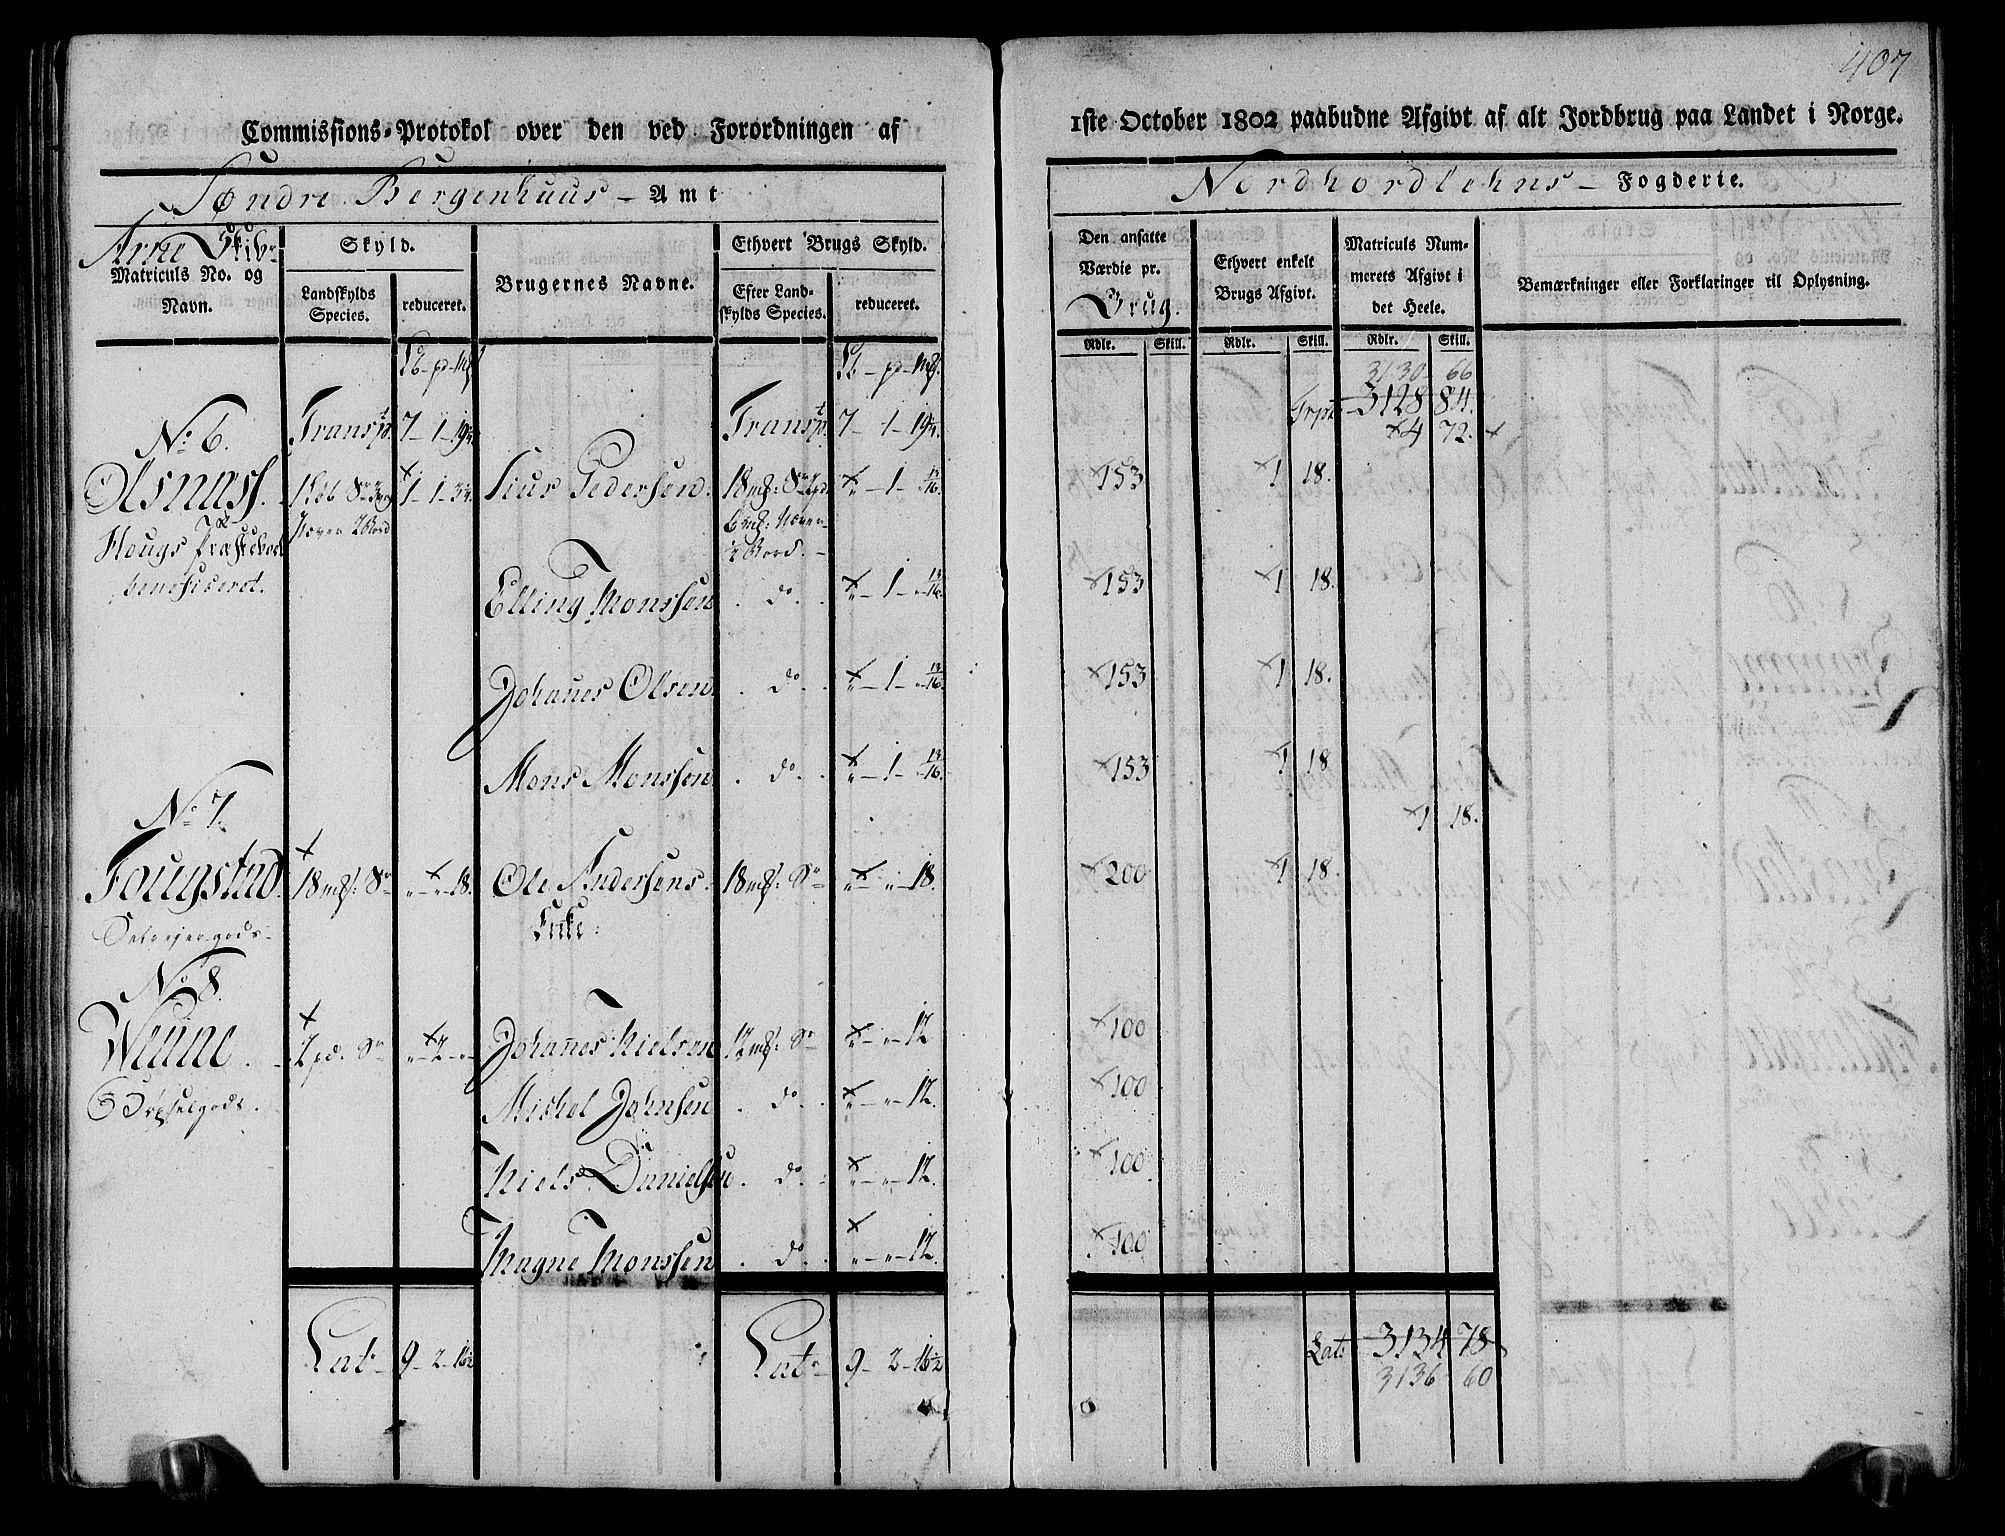 407
Commissions-Protokol over den ved Forordningen af 1ste October 1802 paabudne Afgivt af alt Jordbrug paa Landet i Norge.
Søndre Bergenhuus - Amt
Nordhordlehns - Fogderie.
Arne Skibr
Matriculs No. og Navn.
Skyld.
Landskylds Species.
reduceret.
Brugernes Navne.
Ethvert Brugs Skyld.
Efter Landskylds Species.
reduceret.
Den ansatte Værdie pr. Brug.
Ethvert enkelt Brugs Afgivt.
Matriculs Nummerets Afgivt i det Heele.
Bemærkninger eller Forklaringer til Oplysning.
Rdlr. Skill. Rdlr. Skill. Rdlr. Skill.
3130 66
Transpt 7 - 1 - 19 Transpt 7 - 1 - 19 Trpt 3128 84.
4 72.
No 6.
Hougs Præstebol
beneficeret.
Siur Pedersen. 153 1 18.
Elling Monssen do. 1 - 13/16 153 1 18.
Johanes Olsen do. 1 - 13/16 153 1 18.
Mons Monssen do. 1 - 13/16 153 1 18
1 18.
No 7.
Fougstad
Selvejergods
18 mrk: Sr 18. Ole Andersens Enke. 18 mrk: Sr 18. 200 1 18.
No 8.
2 pd. Sr 2 Johannes Nielsen 12 mrk: Sr 12 100
Odelsgods.
Michel Johnsen do. 12. 100
Niels Danielsen do. 12. 100
Magne Monssen do. 12. 100
Lat: 9 - 2 - 16 1/2 Lat: 9 - 2 - 16 1/2 Lat: 3134 78
3136 60